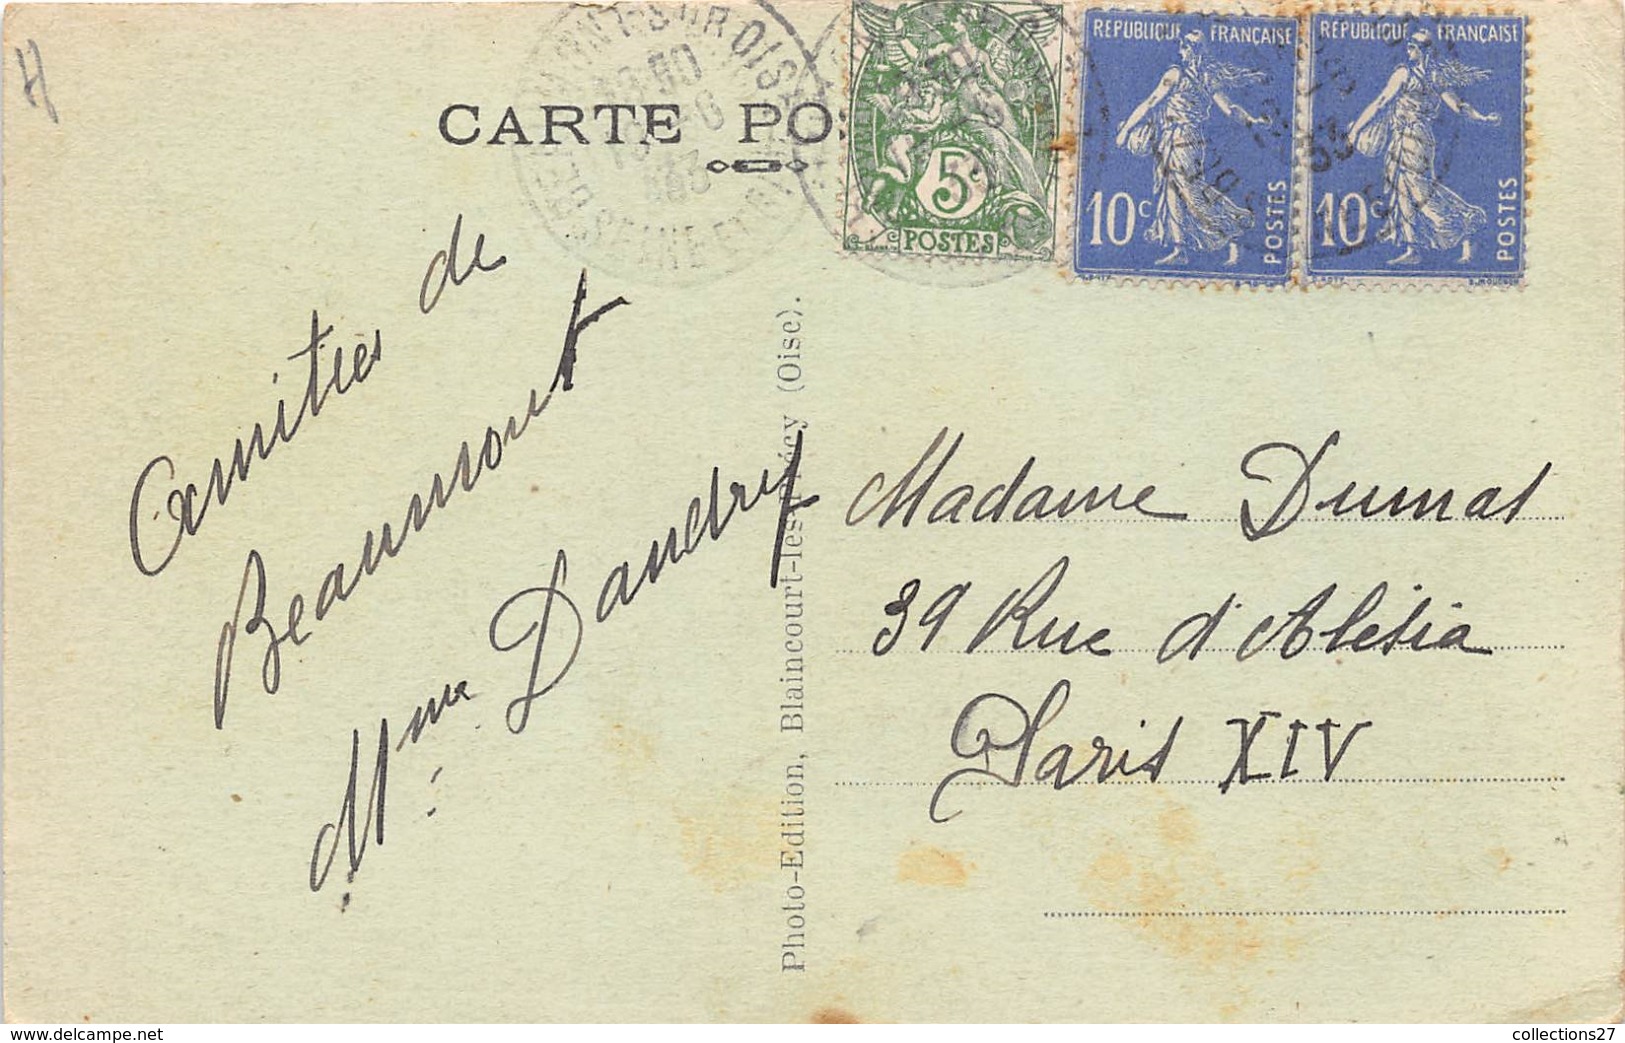 H
CARTE PO
BEAUMONT-SUR-OISE
SEINE ET OISE
5c
POSTES
REPUBLIQUE FRANÇAISE
10c
POSTES
REPUBLIQUE FRANÇAISE
10c
POSTES
Amitiés de
Beaumont
Mme Dandry
Photo-Edition, Blaincourt-les-Précy (Oise).
Madame Dumas
39 Rue d'Alésia
Paris XIV
https://www.delcampe.net
collections27